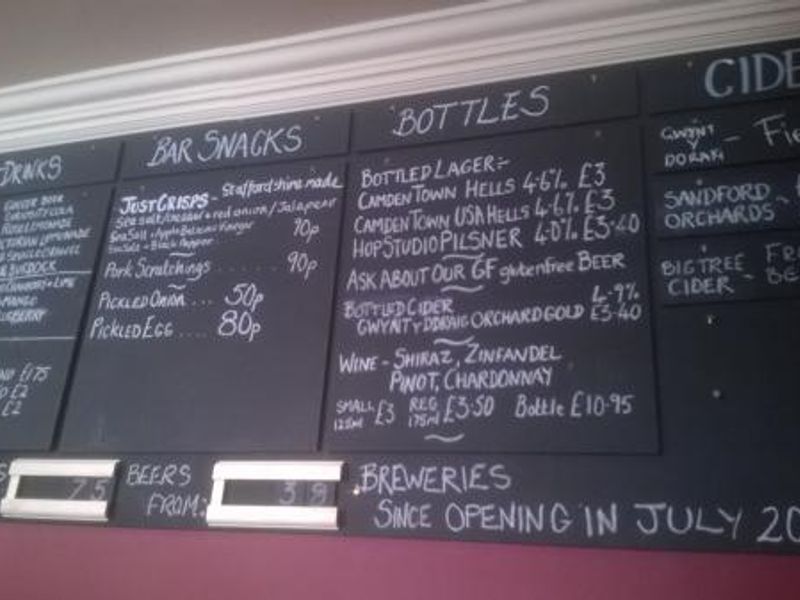 DRINKS
GINGER BEER
CURIOSITY COLA
ROSE LEMONADE
VICTORIAN LEMONADE
& BURDOCK
MANGO
£1.75
£2
£2
BAR SNACKS
JUST CRISPS - Staffordshire made
Sea Salt/cheddar + red onion/Jalapeno
Sea Salt + Apple Balsamic Vinegar 90p
Sea Salt + Black Pepper
Pork Scratchings ...... 90p
PICKLED ONION ... 50p
PICKLED EGG .... 80p
BOTTLES
BOTTLED LAGER:-
CAMDEN TOWN HELLS 4.6% £3
CAMDEN TOWN USA HELLS 4.6% £3
HOPSTUDIO PILSNER 4.0% £3.40
ASK ABOUT OUR GF gluten free BEER
BOTTLED CIDER 4.9%
GWYNT Y DDRAIG ORCHARD GOLD £3.40
WINE - SHIRAZ, ZINFANDEL
PINOT, CHARDONNAY
SMALL 125ml £3 REG 175ml £3.50 Bottle £10.95
CIDE
GWYNT Y DDRAIG - Fie
SANDFORD ORCHARDS -
BIG TREE CIDER - FR BE
S 75 BEERS FROM: 38 BREWERIES
SINCE OPENING IN JULY 20